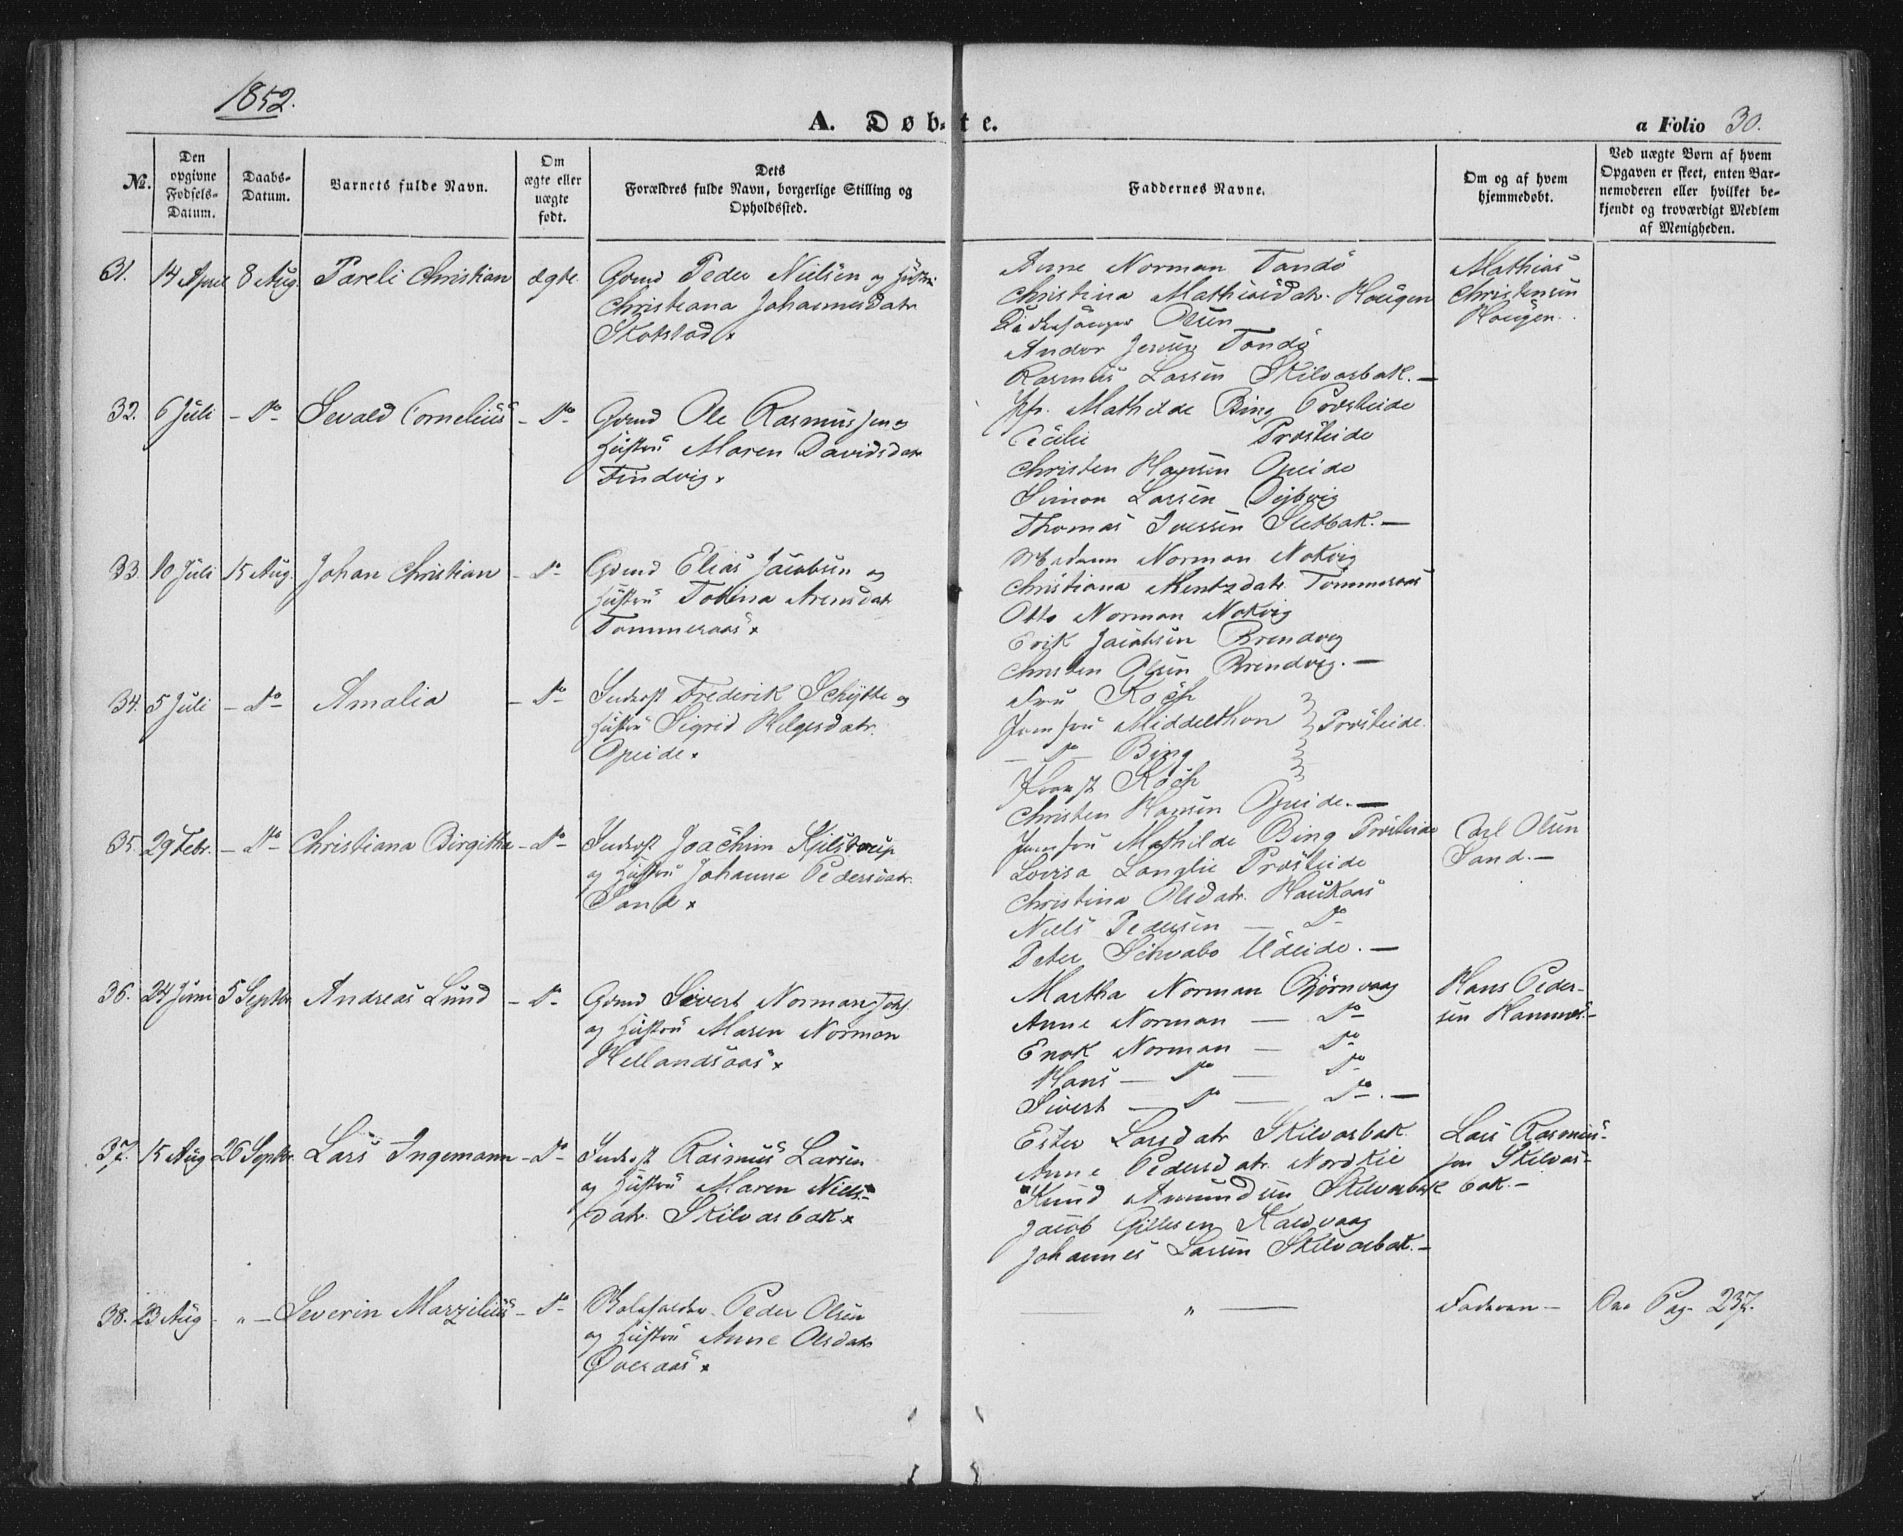 1852.
A. Døbte.
a Folio 30.
No.
Den opgivne Fødsels-Datum.
Daabs-Datum.
Barnets fulde Navn.
Om ægte eller uægte født.
Dets Forældres fulde Navn, borgerlige Stilling og Opholdssted.
Faddernes Navne.
Om og af hvem hjemmedøbt.
Ved uægte Børn af hvem Opgaven er skeet, enten Barnemoderen eller hvilket bekjendt og troværdigt Medlem af Menigheden.
31. 14 April 8 Aug. Pareli Christian ægte.
Gmd Peder Nielsen og Hustru
Christiana Johannesdatr
Skotstad
Anne Norman Tandö
Christina Mathiasdatr. Haugen
Kirkesanger Olsen
Andor Jensen Tandö
Rasmus Larsen Skilvasbak. —
Mathias
Christensen
Haugen.
32. 6 Juli – Do Sevald Cornelius – Do
Gmd Ole Rasmussen og
Hustru Maren Davidsdatr
Findvig.
Jfr. Mathilde Bing Presteide
Cecilie Presteide
Christen Hansen Opeide
Simon Larsen Dybvig
Thomas Iversen Sletbak. —
33. 10 Juli 15 Aug. Johan Christian – Do
Gmd Elias Jacobsen og
Hustru Tobina Arensdatr
Tommeraas
Madam Norman Nokvig
Christiana Mentzdatr. Tommeraas
Otto Norman Nokvig
Erik Jacobsen Brendvig
Christen Olsen Brendvig. —
34. 5 Juli – Do Amalia – Do
Inderst Frederik Schytte og
Hustru Sigrid Helgesdatr.
Opeide.
Fru Koch
Jomfru Middelthon Presteide.
– Do – Bing
Provst Koch
Christen Hansen Opeide. —
35. 29 Febr. – Do Christiana Birgitha – Do
Inderst Joachim Kjilstrup
og Hustru Johanna Pedersdatr.
Sand
Jomfru Mathilde Bing Presteide
Lovisa Langlie Presteide
Christina Olsdatr. Haukaas
Niels Pedersen — Do
Peter Schvabo Udeide. —
Olsen
Sand. —
36. 24 Juni 5 Septbr Andreas Lund – Do
Gmd Sivert Norman
og Hustru Maren Norman
Hellandsaas
Martha Norman Bjørnvaag
Anne Norman — Do
Enok Norman — Do
Hans — Do — Do
Sivert — Do — Do. —
Hans Peder-
sen Hammer. –
37. 15 Aug 26 Septbr. Lars Ingemann – Do
Inderst Rasmus Larsen
og Hustru Maren Niels-
datr. Skilvasbak
Ester Larsdatr Skilvasbak
Anne Pedersdatr Nordkil
Knud Amundsen Skilvasbak
Jacob Gillesen Kaldvaag
Johannes Larsen Skilvasbak. –
Lars Rasmus-
sen Skilvas-
bak. –
38. 23 Aug " – Severin Marzilius – Do
Peder Olsen
og Hustru Anne Olsdatr
Överaas
" —
Faderen –
Pag. 237.